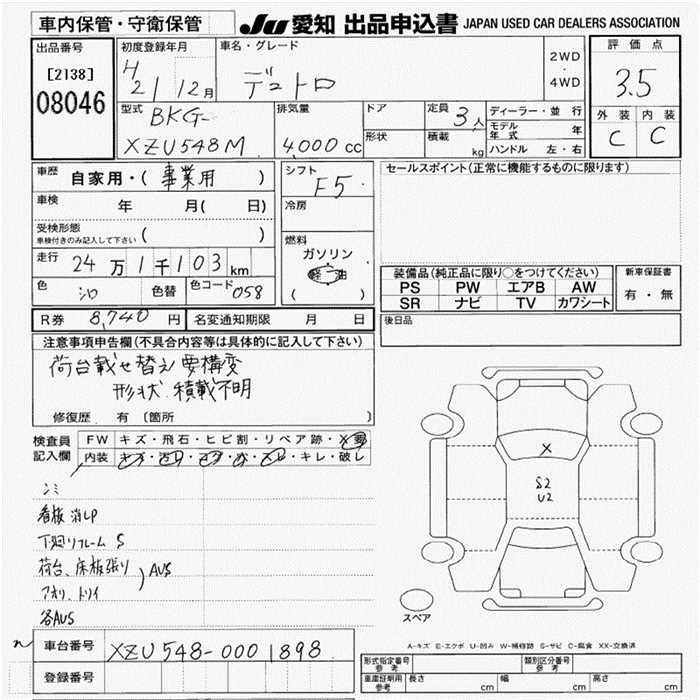 車内保管・守衛保管
JU 愛知 出品申込書 JAPAN USED CAR DEALERS ASSOCIATION
出品番号
[2138]
08046
初度登録年月
H21/12月
車名・グレード
デュトロ
2WD
・
4WD
評価点
3.5
外装 内装
C C
型式 BKG-
XZU548M
排気量
4,000cc
ドア
形状
定員 3人
積載 kg
ディーラー・並行
モデル年式 年
ハンドル 左・右
車歴
自家用・(事業用)
車検 年 月( 日)
受検形態
車検付きのみ記入して下さい ( )
走行 24万1千103km
色 シロ 色替 色コード058
シフト
F5
冷房
燃料
ガソリン
軽油
( )
セールスポイント(正常に機能するものに限ります)
装備品(純正品に限り○をつけてください)
PS PW エアB AW
SR ナビ TV カワシート
新車保証書
有・無
R券 8,740円 名変通知期限 月 日
後日品
注意事項申告欄(不具合内容等は具体的に記入して下さい)
荷台載せ替え要構変
形状 積載不明
修復歴 有 〔箇所 〕
検査員
記入欄
FW キズ・飛石・ヒビ割・リペア跡・X要
内装 キズ・汚れ・コゲ・穴・スレ・キレ・破レ
シミ
看板消しP
下廻りフレームS
荷台、床板張り
アオリ、トリイ
AUS
各AUS
X
S2
U2
スペア
A-キズ E-エクボ U-凹み W-補修跡 S-サビ C-腐食 XX-交換済
車台番号 XZU548-0001898
登録番号
形式指定番号
参考
類別区分番号
参考
車庫証明用
参考
長さ cm 幅 cm 高さ cm